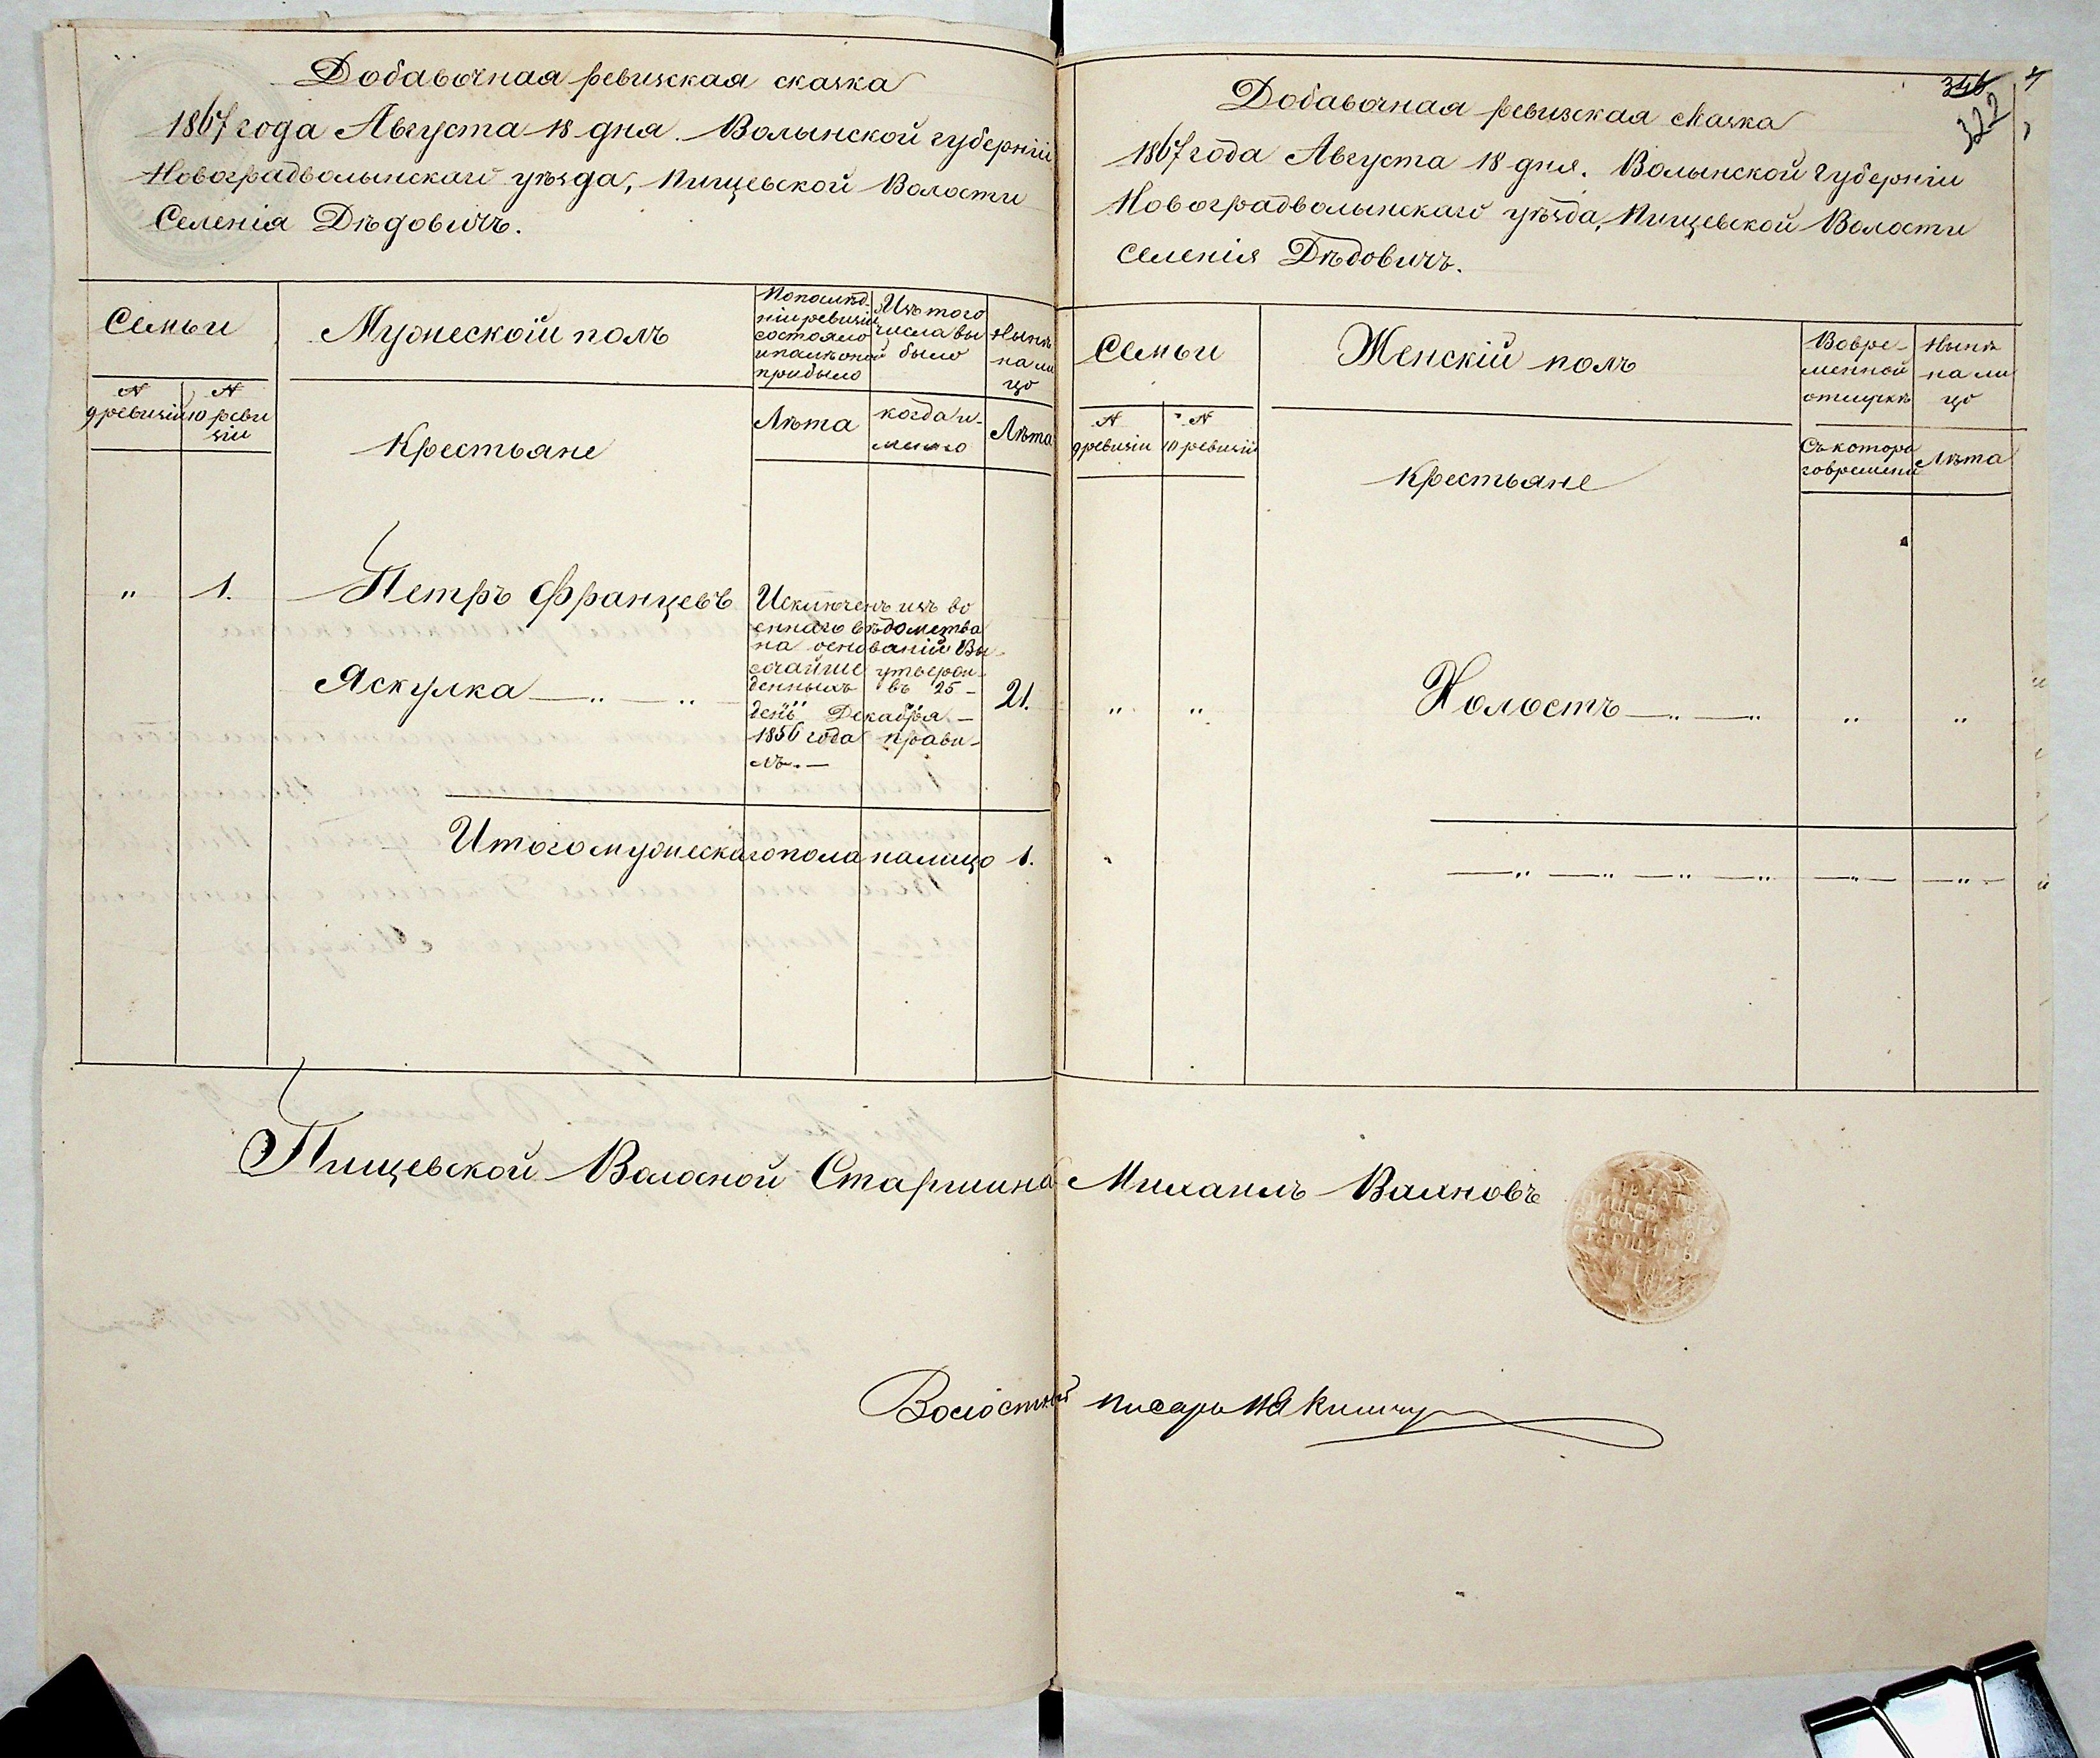 Добавочная ревизская сказка
1867 года Августа 18 дня. Волынской губерніи
Новоградволынскаго уѣзда, Пищевской Волости
Селенія Дѣдовичъ.
Семьи
Мужескій полъ
По послѣд-
ній ревизіи
состояло
и послѣ оной
прибыло
Изъ того
числа вы
было
Нынѣ
на ли
цо
№
9 ревизіи
№
10 реви
зіи
Крестьяне
Лѣта
когда и-
менно
Лѣта
" 1. Петръ Францевъ
Яскулка — " — "
Исключенъ изъ во
еннаго вѣдомства
на основаніи Вы-
сочайше утверж-
денныхъ въ 25 -
день Декабря -
1856 года прави-
лъ. —
21.
Итого мужескаго пола налицо 1.
346
322
Добавочная ревизская сказка
1867 года Августа 18 дня. Волынской Губерніи
Новоградволынскаго уѣзда, Пищевской Волости
Селенія Дѣдовичъ.
Семьи
Женскій полъ
Вовре-
менной
отлучкѣ
Нынѣ
на ли
цо
№
9 ревизіи
№
10 ревизіи
Крестьяне
Съ котора
го времени
Лѣта
" " Холостъ — " — " " "
— " — " — " — " — " — — " —
Пищевской Волосной Старшина Михаилъ Валновъ
ПЕЧАТЬ
ПИЩЕВСКАГО
ВОЛОСТНАГО
СТАРШИНЫ
Волостный писарь